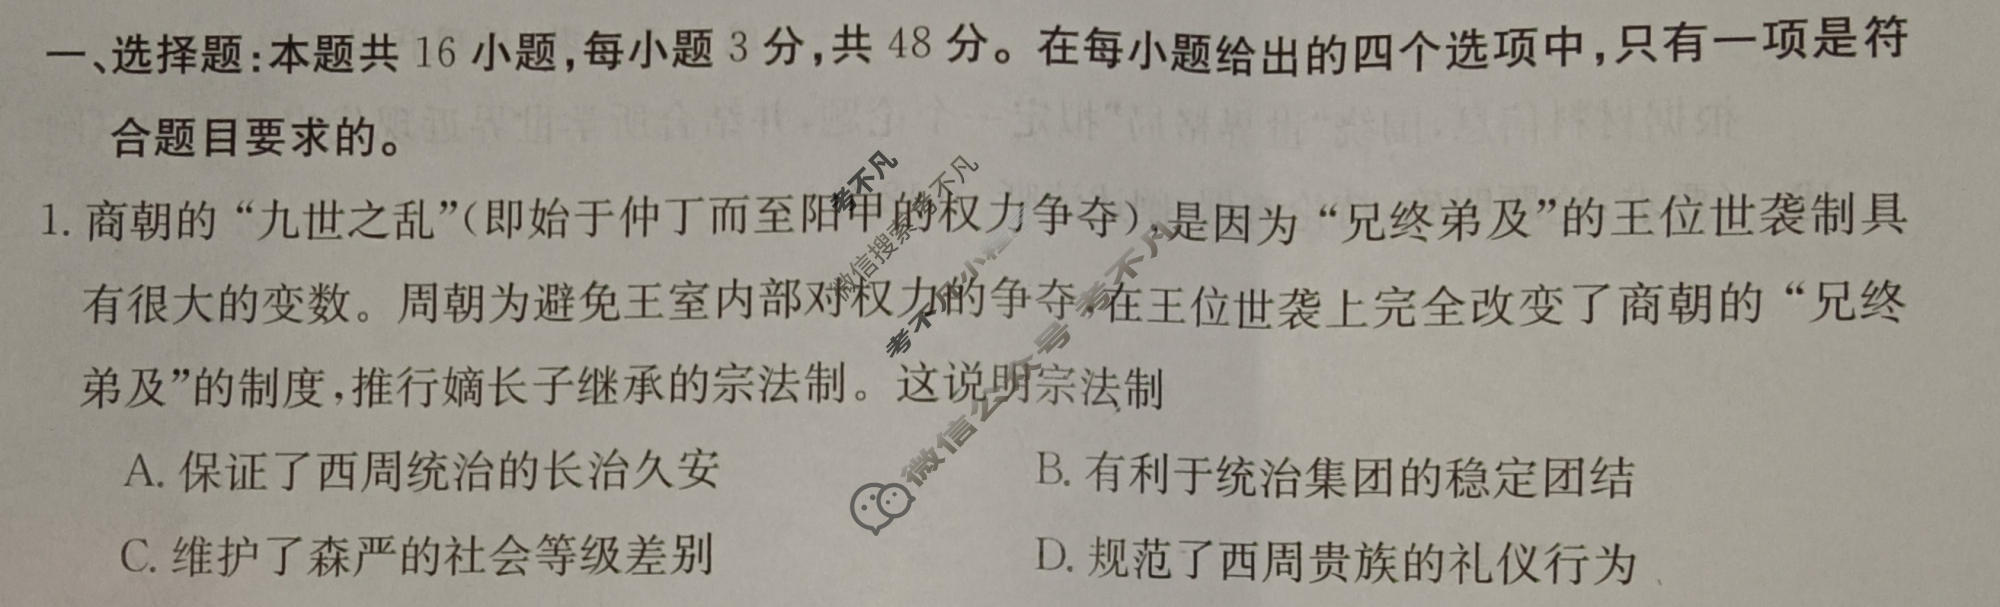 一、选择题:本题共 16 小题,每小题 3 分,共 48 分。在每小题给出的四个选项中,只有一项是符
合题目要求的。
1. 商朝的“九世之乱”(即始于仲丁而至阳甲的权力争夺),是因为“兄终弟及”的王位世袭制具
有很大的变数。周朝为避免王室内部对权力的争夺,在王位世袭上完全改变了商朝的“兄终
弟及”的制度,推行嫡长子继承的宗法制。这说明宗法制
A. 保证了西周统治的长治久安
B. 有利于统治集团的稳定团结
C. 维护了森严的社会等级差别
D. 规范了西周贵族的礼仪行为
考不凡
微信搜索考不凡
考不凡小程
微信公众号 考不凡